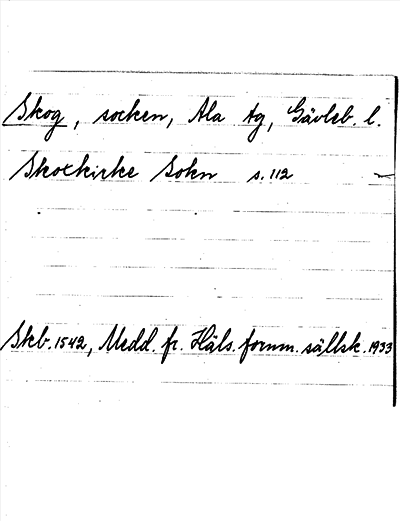 Skog, socken, Ala tg, Gävleb. l.
Skoekirke Sokn s. 112
Skb. 1542, Medd. fr. Häls. fornm. sällsk. 1933